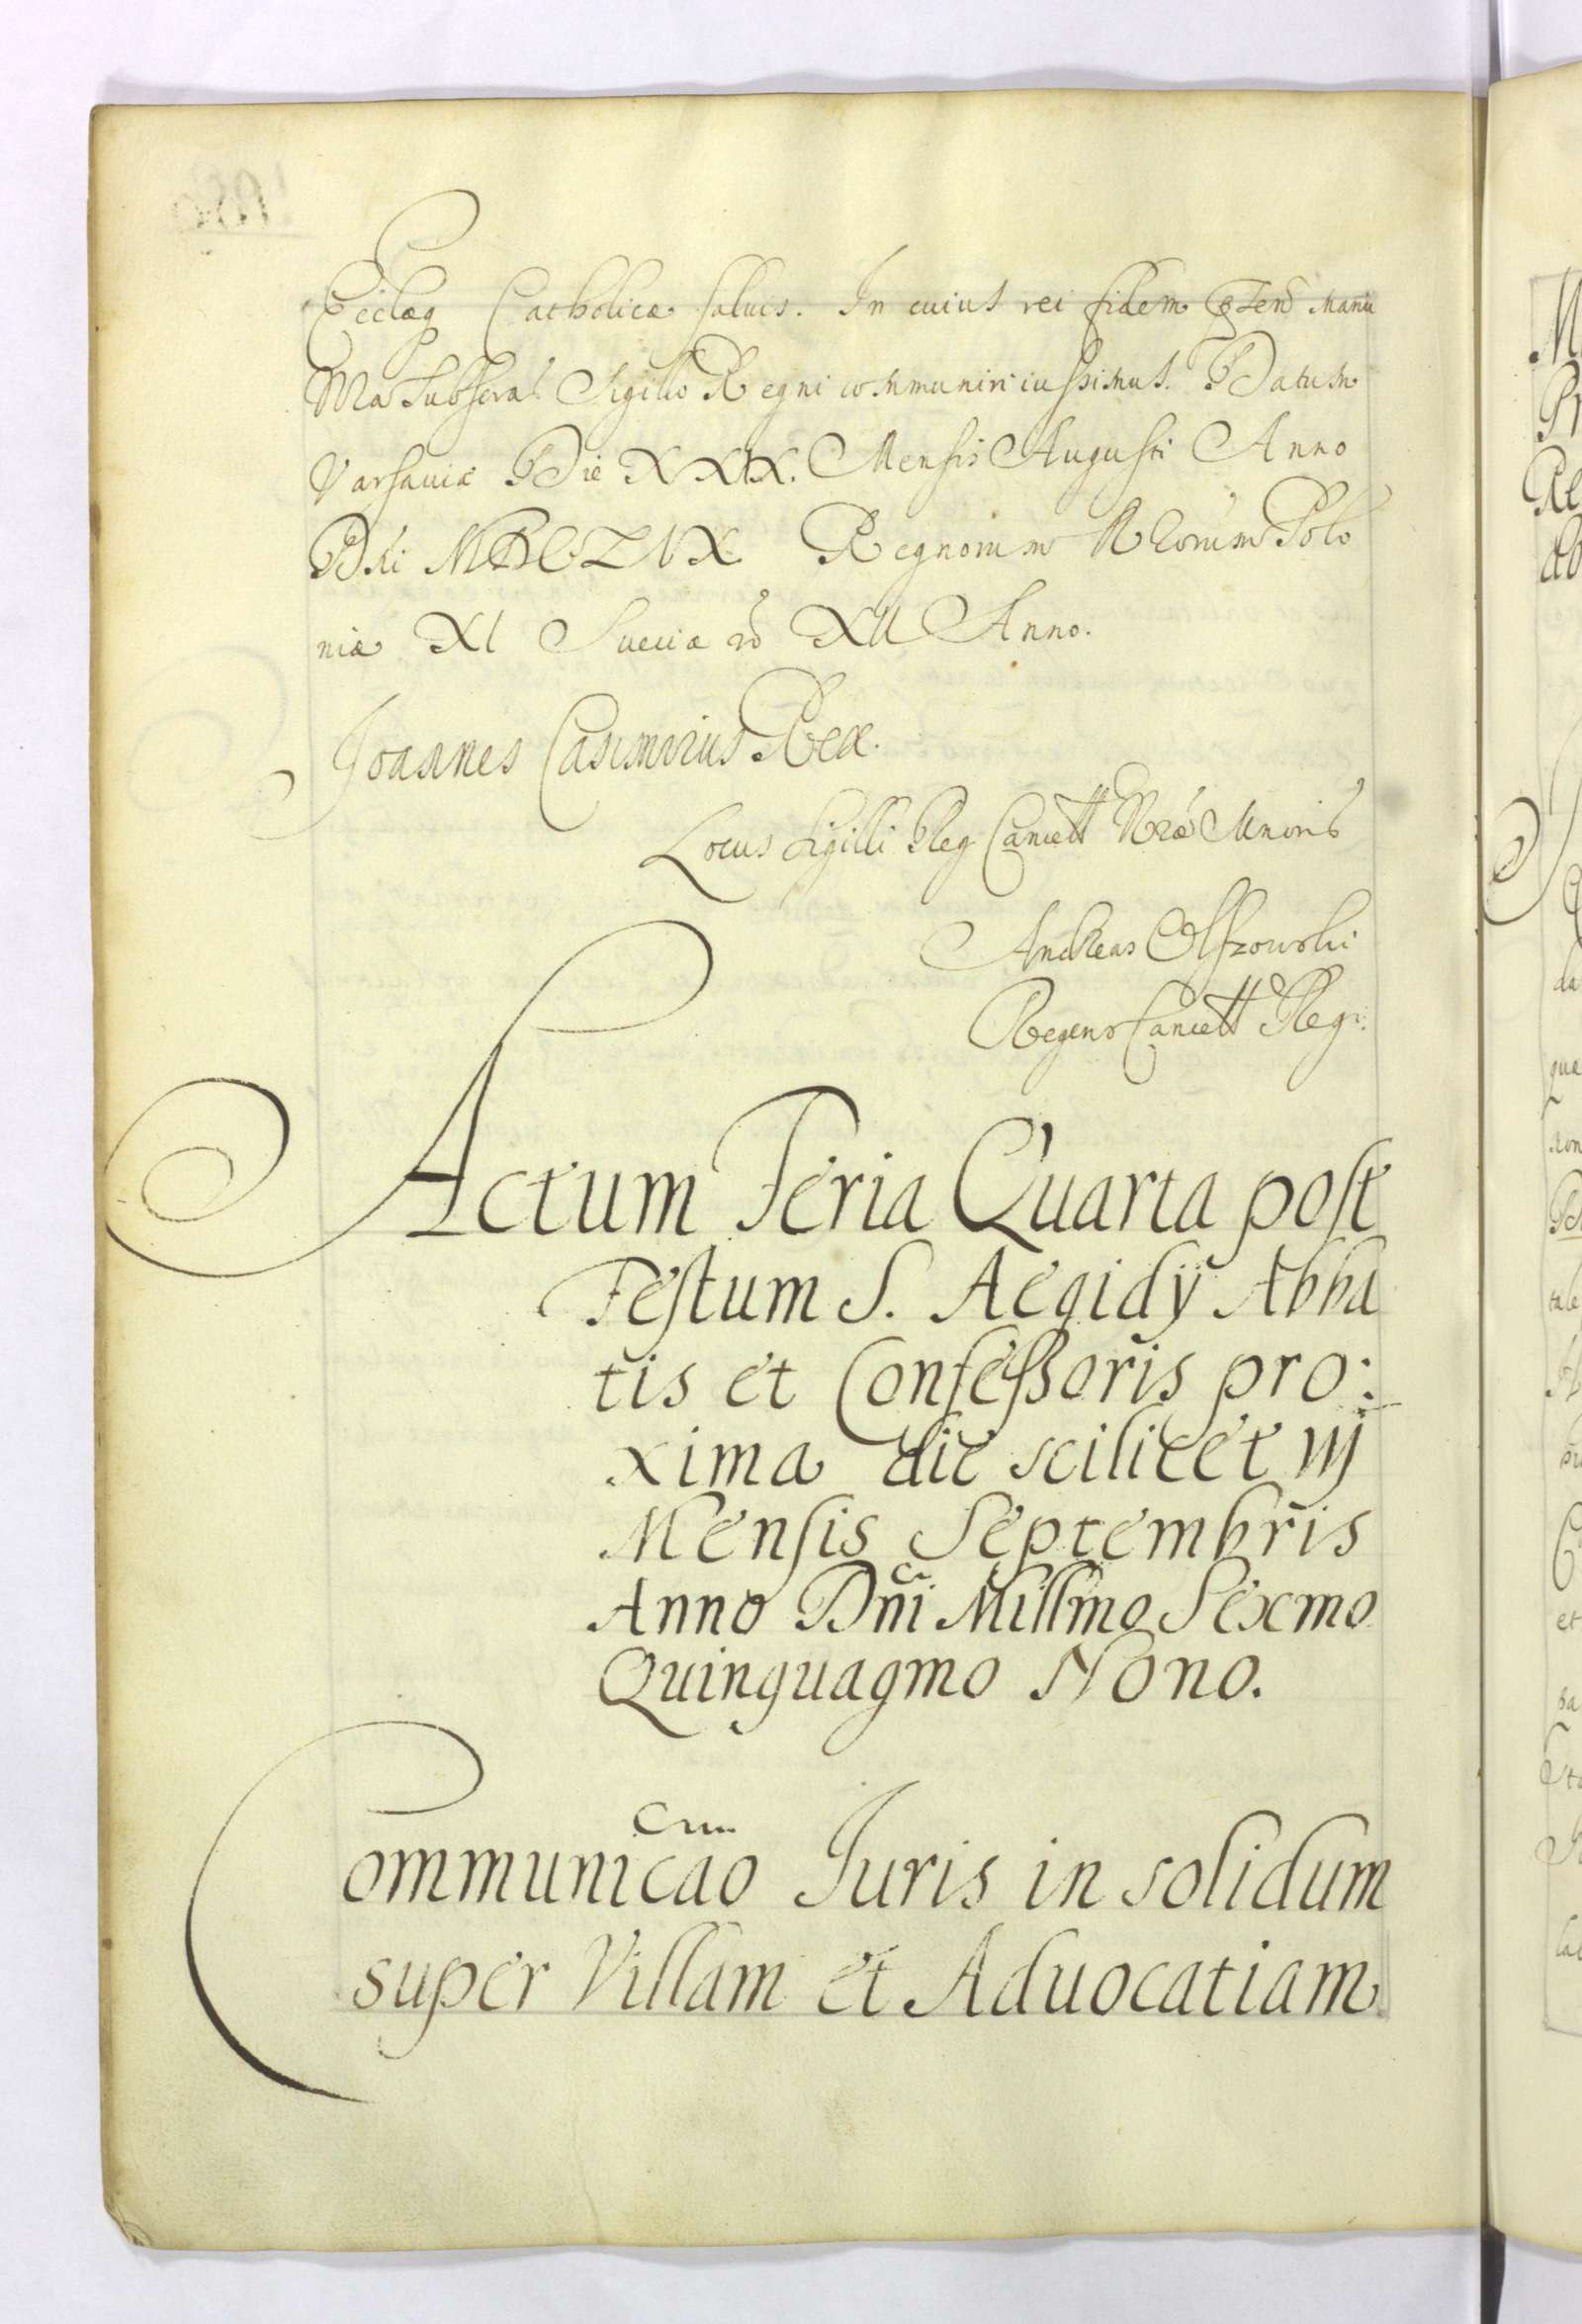 Ecclæq Catholicæ saluis. In cuius rei fidem pñtem Manu
Nra Subscrat Sigillo Regni communiri iussimus. Datum
Varsauiæ Die XXIX. Mensis Augusti Anno
Dni MDCLIX. Regnorum Nrorum Polo
niæ XI Sueciæ vo XII Anno.
Joannes Casimirus Rex.
Locus Sigilli Reg Cancell Nræ Minoris
Andreas Olszowski
Regens Cancell Regn.
Actum Feria Quarta post
Festum S. Aegidÿ Abba
tis et Confessoris pro:
xima die scilicet iij
Mensis Septembris
Anno Dni Millmo Sexmo
Quinquagmo Nono.
Communicao Iuris in solidum
super Villam et Aduocatiam